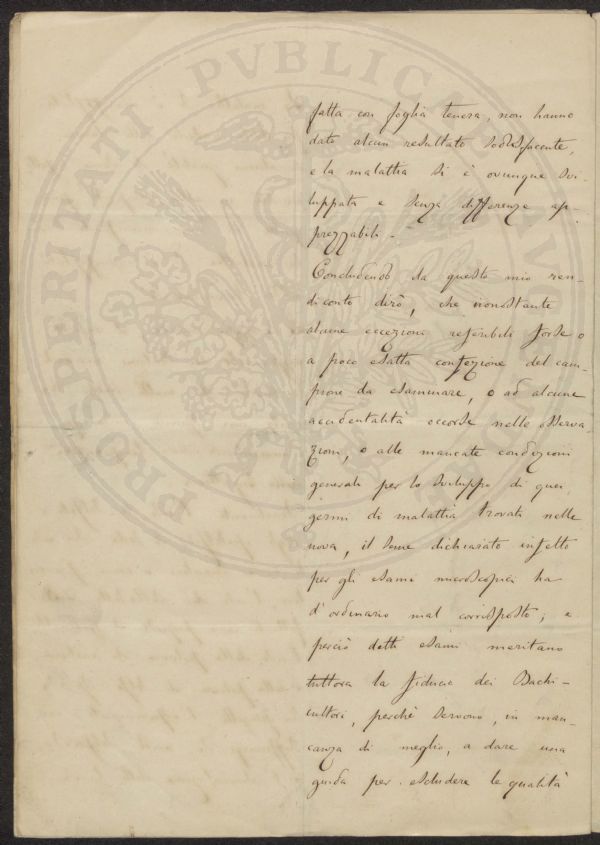 PROSPERITATI PVBLICAE
fatta con foglia tenera, non hanno
dato alcun resultato sodisfacente,
e la malattia si è ovunque svi-
luppata e senza differenze ap-
prezzabili.-
Concludendo da questo mio ren-
diconto dirò, che nonostante
alcune eccezioni referibili forse o
a poco esatta confezione del cam-
pione da esaminare, o ad alcune
accidentalità occorse nelle osserva-
zioni, o alle mancate condizioni
generali per lo sviluppo di quei
germi di malattia trovati nelle
uova, il seme dichiarato infetto
per gli esami microscopici ha
d'ordinario mal corrisposto; e
perciò detti esami meritano
tuttora la fiducia dei Bachi-
cultori, perchè servono, in man-
canza di meglio, a dare una
guida per escludere le qualità